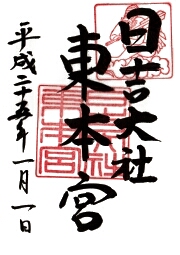 日吉大社
東本宮
平成二十五年一月一日